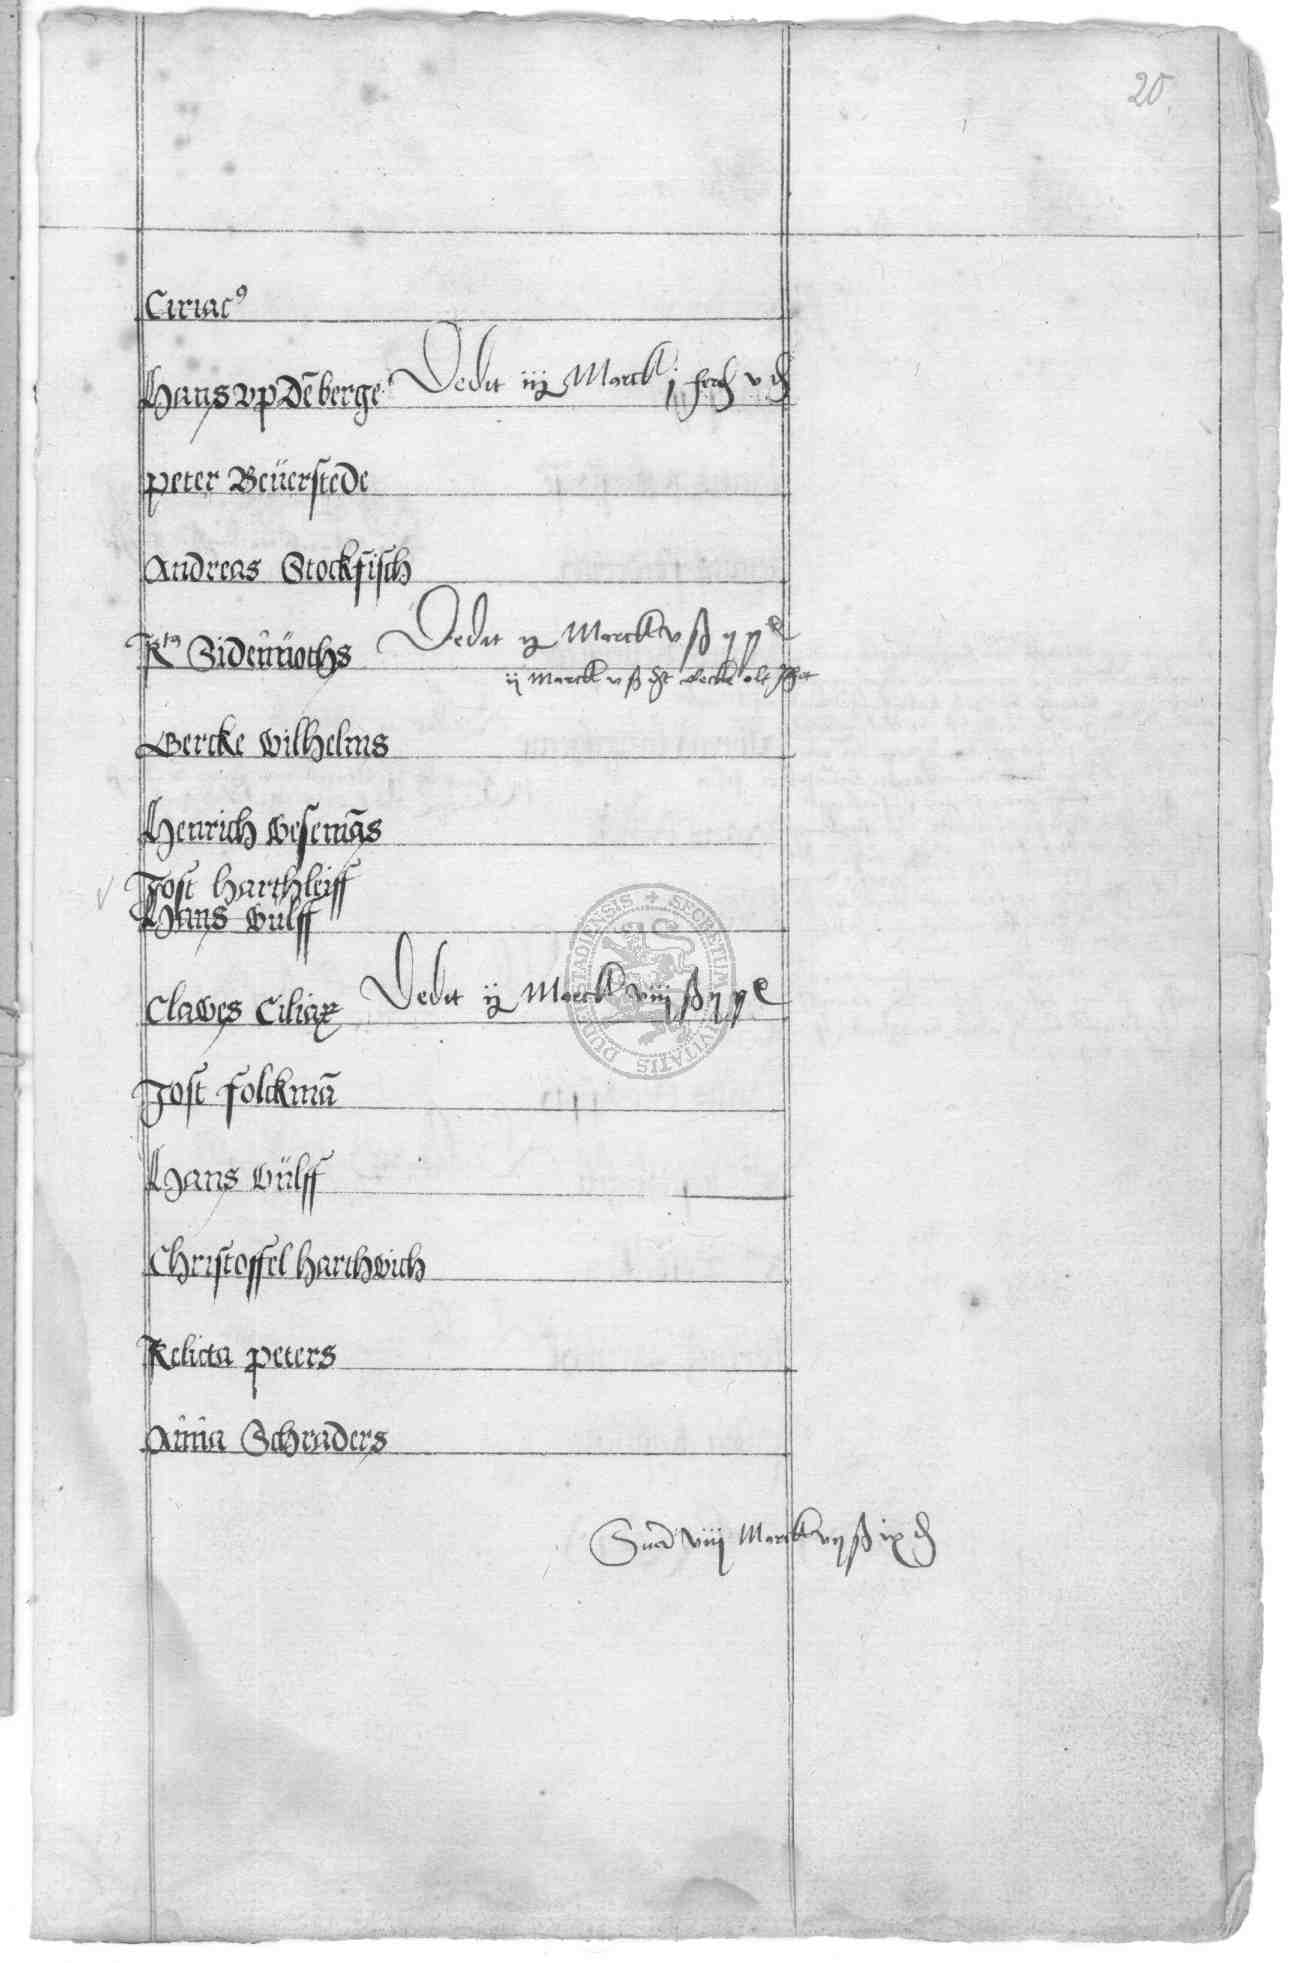 20
Ciriac9
Hans vp dē berge Dedit iij Marck j ferd v ₰
Peter Beüerstede
Andreas Stockfisch
Rta Sidenn̄oths Dedit ij Marck v ß
ij Marck v ß
Gercke Wilhelms
Henrich Wesemās
Jost Harthleiff
Hans Wulff
Clawes Ciliax Dedit ij Marck viij ß
Jost Folckmā
Hans Wülff
Christoffel Harthwich
Relicta Peters
Anna Schraders
viij Marck vij ß ix ₰